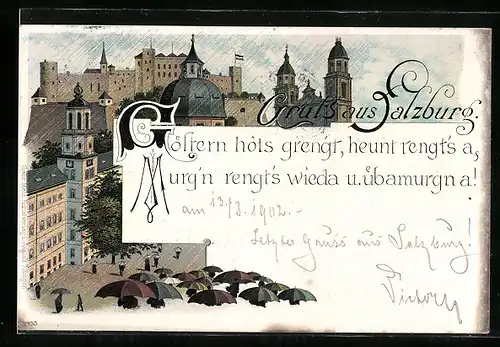 Gruss aus Salzburg.
Gestern hôts grengt, heunt rengt's a,
Murg'n rengt's wieda u. übamurgn a!
am 13/8. 1902.-
Letzter Gruss aus Salzburg!